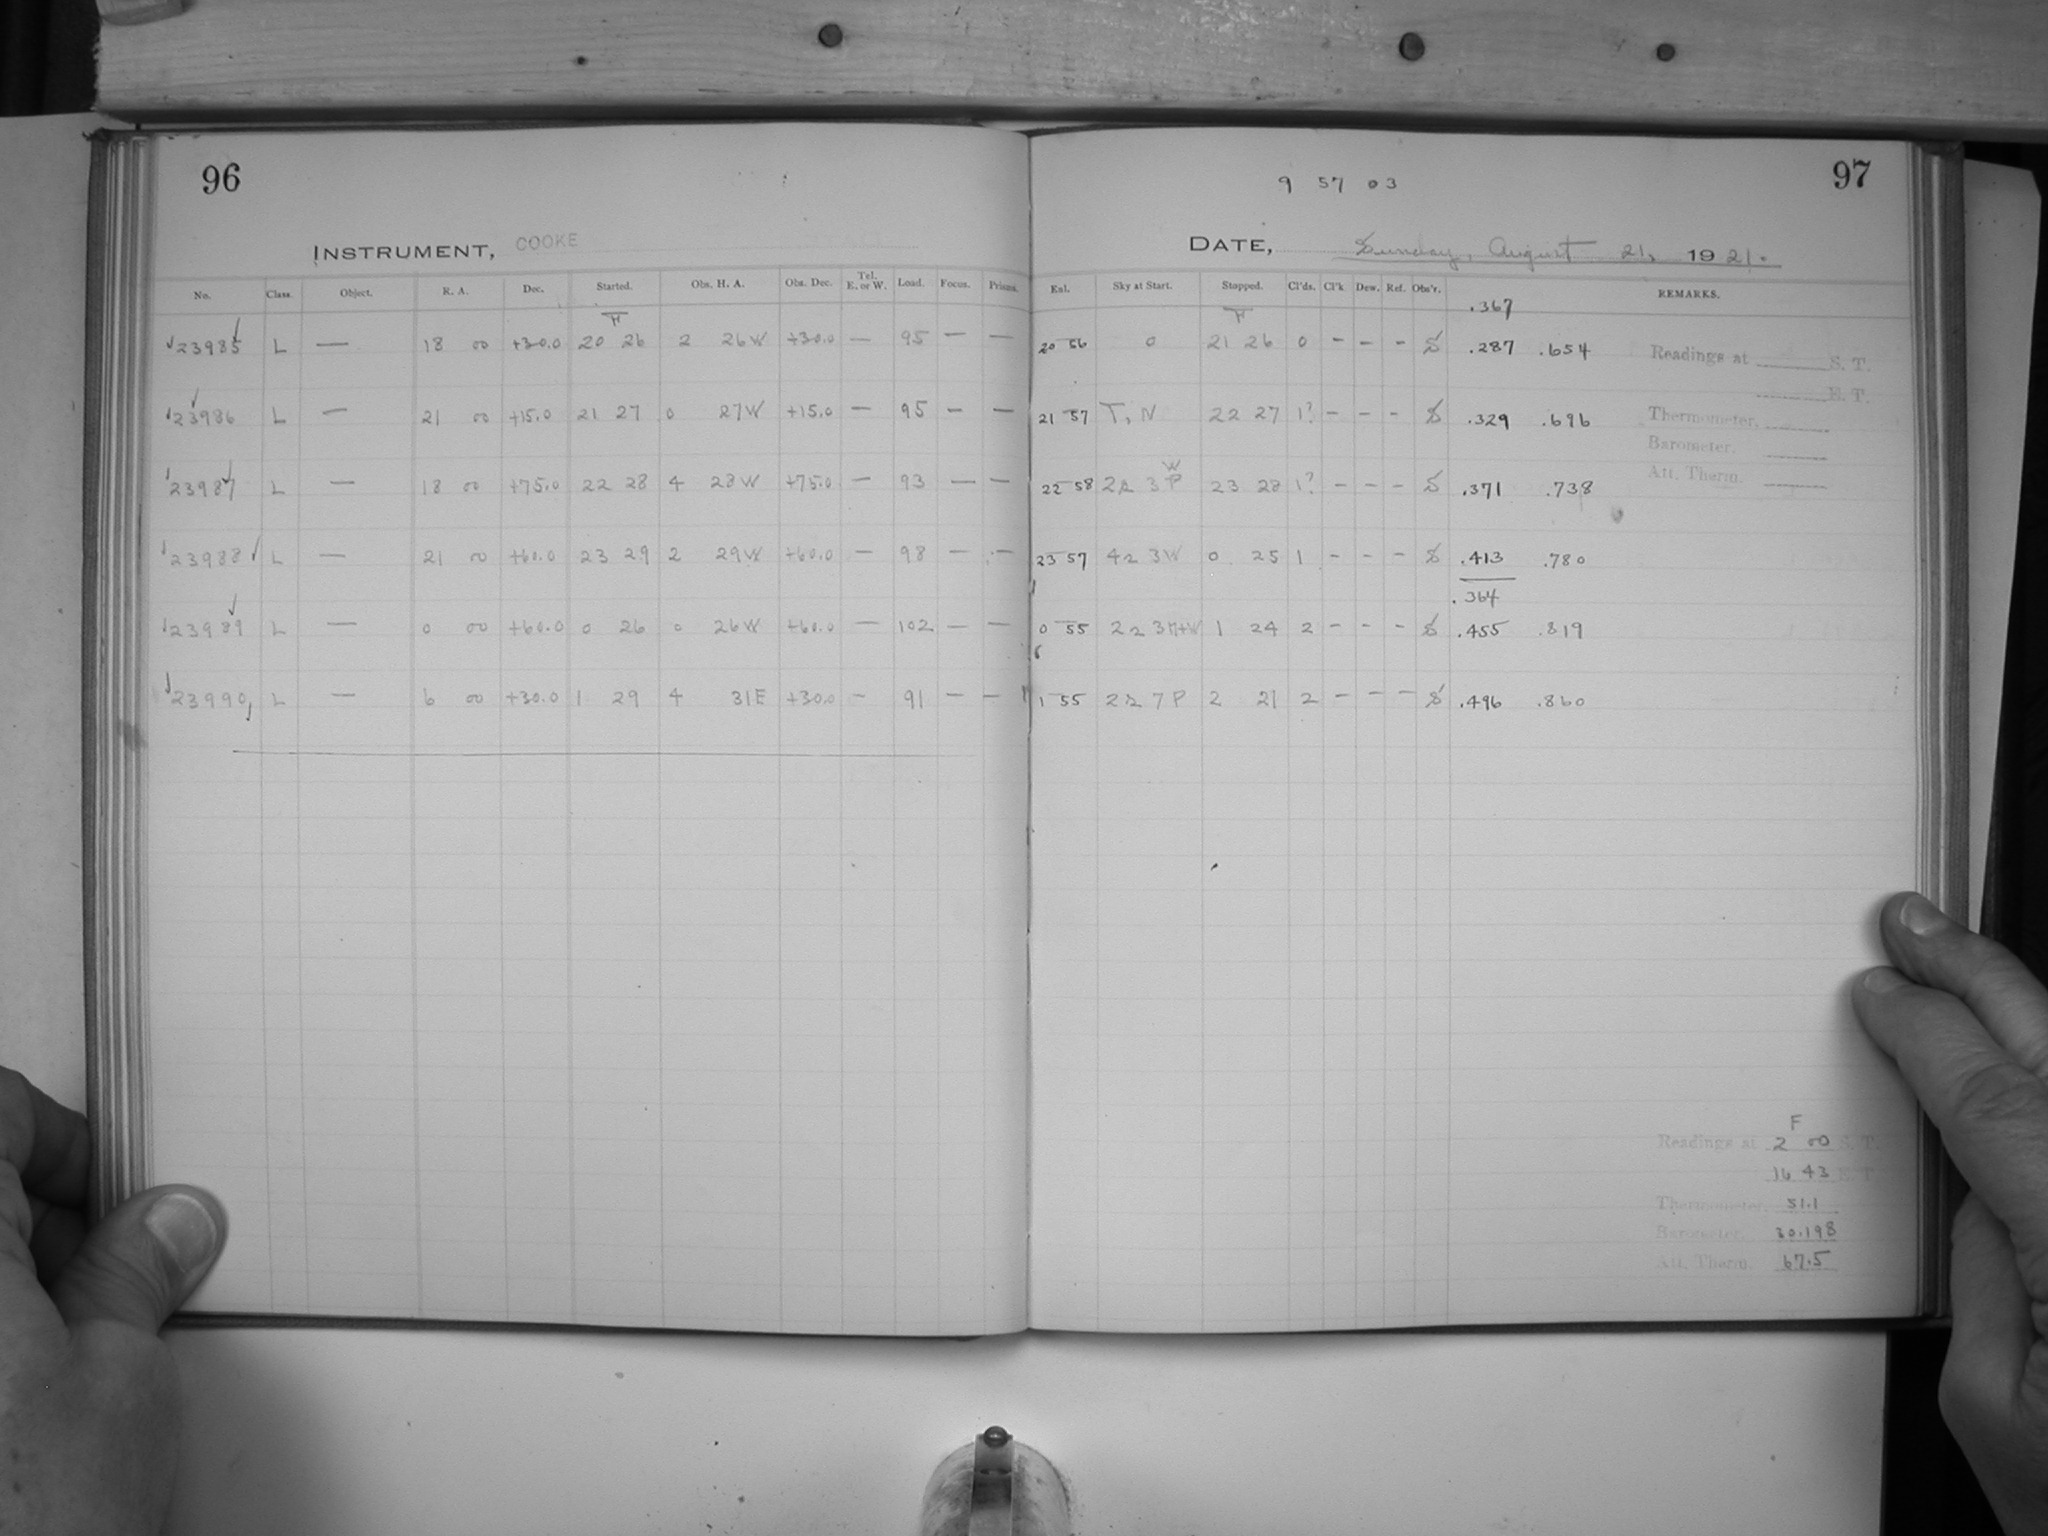 96
INSTRUMENT, COOKE
No. Class. Object. R. A. Dec. Started. Obs. H. A. Obs. Dec. Tel. E. or W. Load. Focus. Prisms.
F
23985 L — 18 00 +30.0 20 26 2 26W +30.0 — 95 — —
23986 L — 21 00 +15.0 21 27 0 27W +15.0 — 95 — —
23987 L — 18 00 +75.0 22 28 4 28W +75.0 — 93 — —
23988 L — 21 00 +60.0 23 29 2 29W +60.0 — 98 — —
23989 L — 0 00 +60.0 0 26 0 26W +60.0 — 102 — —
23990 L — 6 00 +30.0 1 29 4 31E +30.0 — 91 — —
97
9 57 03
DATE, Sunday, August 21, 1921.
Exl. Sky at Start. Stopped. Cl'ds. Cl'k Dew. Ref. Obs'r. REMARKS.
F .367
20 56 0 21 26 0 - - - S .287 .654
21 57 T, N 22 27 1? - - - S .329 .696
W
22 58 22 3 P 23 28 1? - - - S .371 .738
23 57 42 3W 0 25 1 - - - S .413 .780
.364
0 55 22 3 1 24 2 - - - S .455 .819
1 55 22 7 P 2 21 2 - - - S .496 .860
Readings at S. T.
E. T.
Thermometer,
Barometer.
Att. Therm.
F
Readings at 2 00 S. T.
16 43 E. T.
Thermometer, 51.1
Barometer. 30.198
Att. Therm. 67.5